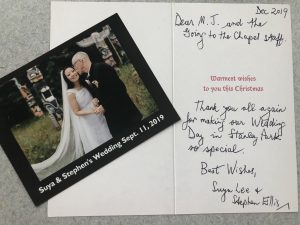 Dec 2019
Dear M.J. and the
Going to the Chapel staff.
Warmest wishes
to you this Christmas
Thank you all again
for making our Wedding
Day in Stanley Park
so special.
Best Wishes,
Suya Lee &
Stephen Ellis
Suya & Stephen's Wedding Sept. 11, 2019